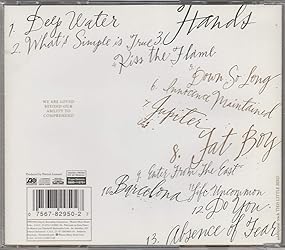 1. Deep Water
2. What's Simple is True
3. Hands
4. Kiss the Flame
5. Down So Long
6. Innocence Maintained
7. Jupiter
8. Fat Boy
9. Enter From The East
10. Barcelona
11. Life Uncommon
12. Do You
13. Absence of Fear
WE ARE LOVED
BEYOND OUR
ABILITY TO
COMPREHEND
0 7567-82950-2